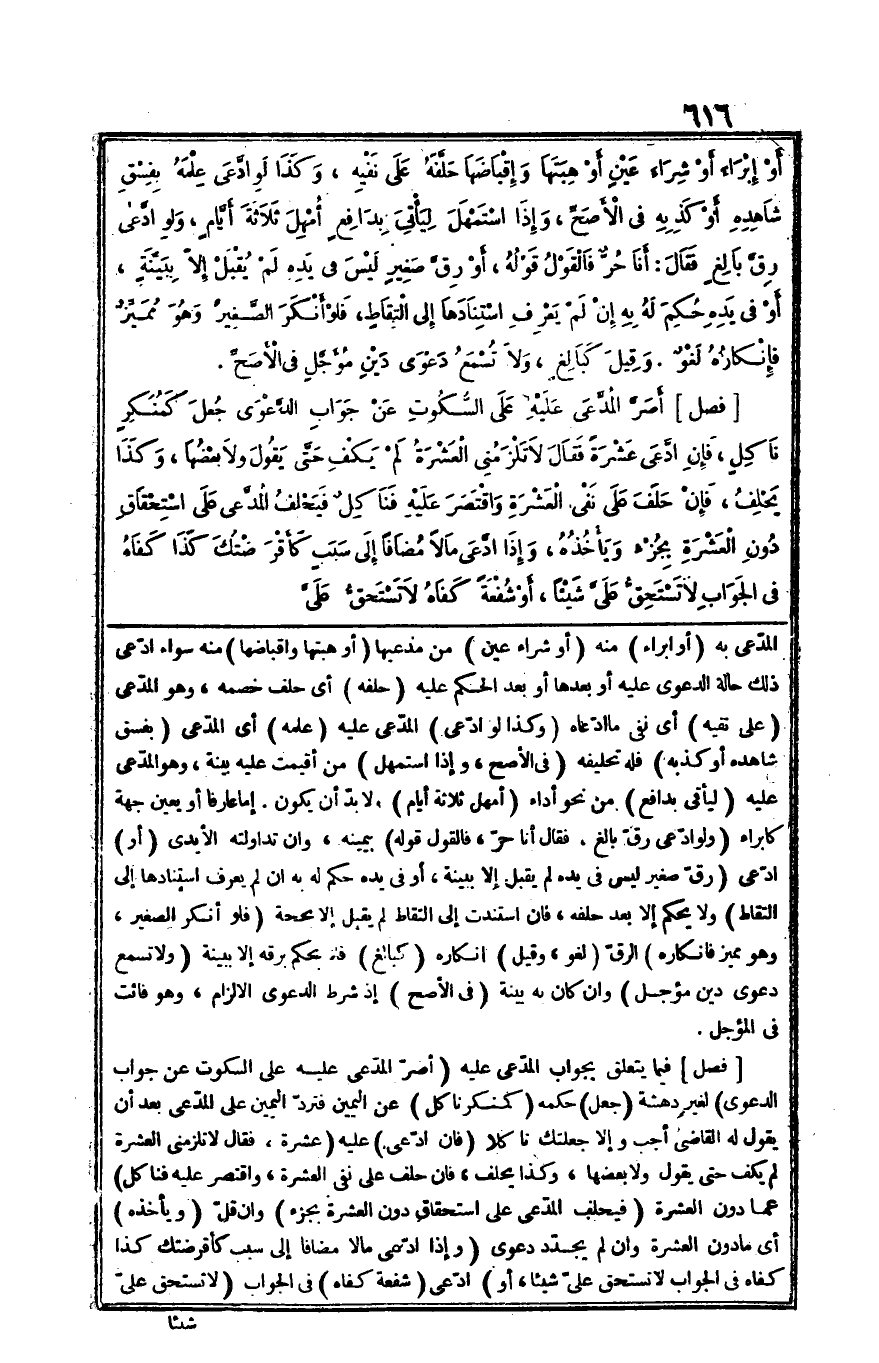 ٦١٦
أَوْ إِبْرَاءَ أَوْ شِرَاءَ عَيْنٍ أَوْ هِبَتَهَا وَإِقْبَاضَهَا حَلَّفَهُ عَلَى نَفْيِهِ ، وَكَذَا لَوِ ادَّعَى عِلْمَهُ بِفِسْقِ
شَاهِدِهِ أَوْ كَذِبِهِ فِى الْأَصَحِّ ، وَإِذَا اسْتَمْهَلَ لِيَأْتِىَ بِدَافِعٍ أُمْهِلَ ثَلَاثَةَ أَيَّامٍ ، وَلَوِ ادَّعَى
رِقَّ بَالِغٍ فَقَالَ : أَنَا حُرٌّ فَالْقَوْلُ قَوْلُهُ ، أَوْ رِقَّ صَغِيرٍ لَيْسَ فِى يَدِهِ لَمْ يُقْبَلْ إِلاَّ بِبَيِّنَةٍ ،
أَوْ فِى يَدِهِ حُكِمَ لَهُ بِهِ إِنْ لَمْ يَعْرِفِ اسْتِنَادَهَا إِلَى الْتِقَاطٍ، فَلَوْ أَنْكَرَ الصَّغِيرُ وَهُوَ مُمَيِّزٌ
فَإِنْكَارُهُ لَغْوٌ . وَقِيلَ كَبَالِغٍ ، وَلاَ تُسْمَعُ دَعْوَى دَيْنٍ مُؤَجَّلٍ فِى الْأَصَحِّ .
[ فصل ] أَصَرَّ الْمُدَّعَى عَلَيْهِ عَلَى السُّكُوتِ عَنْ جَوَابِ الدَّعْوَى جُعِلَ كَمُنْكِرٍ
نَاكِلٍ ، فَإِنِ ادَّعَى عَشْرَةً فَقَالَ لاَتَلْزَمُنِى الْعَشْرَةُ لَمْ يَكْفِ حَتَّى يَقُولَ وَلاَ بَعْضُهَا ، وَكَذَا
يَحْلِفُ ، فَإِنْ حَلَفَ عَلَى نَفْىِ الْعَشْرَةِ وَاقْتَصَرَ عَلَيْهِ فَنَاكِلٌ فَيَحْلِفُ الْمُدَّعِى عَلَى اسْتِحْقَاقِ
دُونِ الْعَشْرَةِ بِجُزْءٍ وَيَأْخُذُهُ ، وَإِذَا ادَّعَى مَالاً مُضَافًا إِلَى سَبَبٍ كَأَقْرَضْتُكَ كَذَا كَفَاهُ
فِى الْجَوَابِ لاَتَسْتَحِقُّ عَلَىَّ شَيْئًا ، أَوْ شُفْعَةً كَفَاهُ لاَتَسْتَحِقُّ عَلَىَّ
المدّعى به (أو ابراء) منه (أو شراء عين) من مدعيها (أو هبتها واقباضها) منه سواء ادّعى
ذلك حالة الدعوى عليه أو بعدها أو بعد الحكم عليه (حلفه) أى حلف خصمه ، وهو المدّعى
(على نفيه) أى نفى ما ادّعاه (وكذا لو ادّعى) المدّعى عليه (علمه) أى المدّعى (بفسق
شاهده أو كذبه) فله تحليفه (فى الأصح ، وإذا استمهل) من أقيمت عليه بينة ، وهو المدّعى
عليه (ليأتى بدافع) من نحو أداء (أمهل ثلاثة أيام) ، لابدّ أن يكون . اماعارفا أو يعين جهة
كابراء (ولو ادّعى رقّ بالغ ، فقال أنا حرّ ، فالقول قوله) بيمينه ، وان تداولته الأيدى (أو)
ادّعى (رقّ صغير ليس فى يده لم يقبل إلا ببينة ، أو فى يده حكم له به ان لم يعرف استنادها إلى
التقاط) ولا يحكم إلا بعد حلفه ، فان استندت إلى التقاط لم يقبل إلا بحجة (فلو أنكر الصغير ،
وهو مميز فانكاره) الرقّ (لغو ، وقيل) انكاره (كبالغ) فلا يحكم برقه إلا ببينة (ولا تسمع
دعوى دين مؤجل) وان كان به بينة (فى الأصح) إذ شرط الدعوى الالزام ، وهو فائت
فى المؤجل .
[ فصل ] فيما يتعلق بجواب المدّعى عليه (أصرّ المدّعى عليه على السكوت عن جواب
الدعوى) لغير دهشة (جعل) حكمه (كمنكر ناكل) عن اليمين فتردّ اليمين على المدّعى بعد أن
يقول له القاضى أجب وإلا جعلتك ناكلا (فان ادّعى) عليه (عشرة ، فقال لاتلزمنى العشرة
لم يكف حتى يقول ولا بعضها ، وكذا يحلف ، فان حلف على نفى العشرة ، واقتصر عليه فناكل)
عما دون العشرة (فيحلف المدّعى على استحقاق دون العشرة بجزء) وان قلّ (ويأخذه)
أى مادون العشرة وان لم يجدّد دعوى (وإذا ادّعى مالا مضافا إلى سبب كأقرضتك كذا
كفاه فى الجواب لاتستحق علىّ شيئا ، أو) ادّعى (شفعة كفاه) فى الجواب (لاتستحق علىّ
شيئا